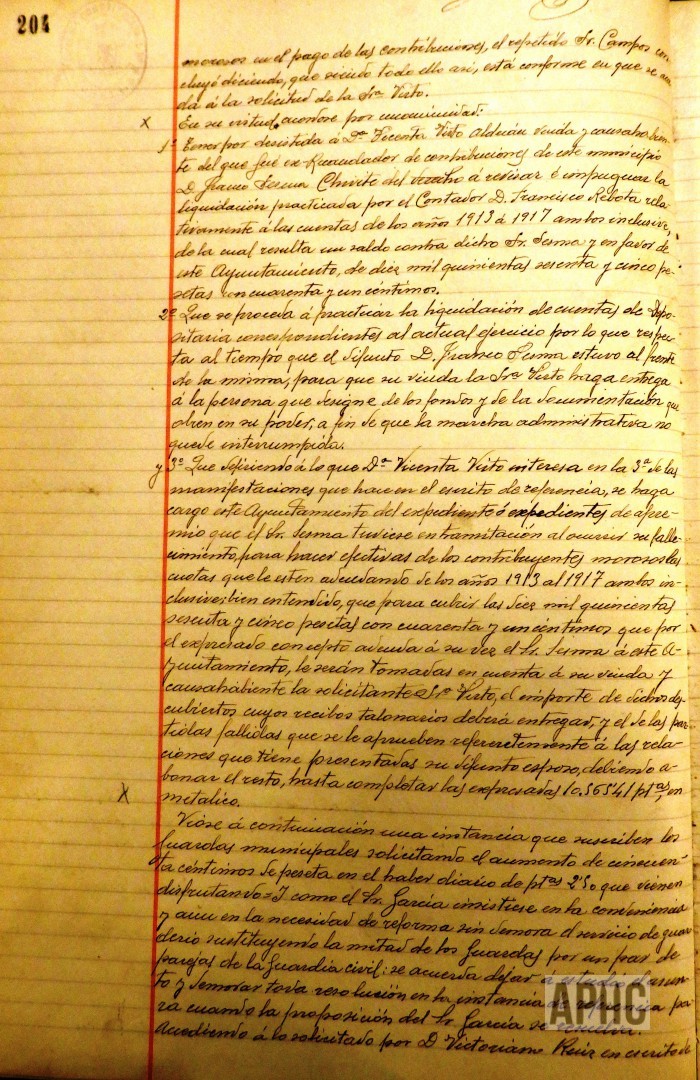 204
morosos en el pago de las contribuciones, el repetido Sr. Campos con
cluyó diciendo, que siendo todo ello así, está conforme en que se acce
da á la solicitud de la Sra Visto.
x En su virtud, acordose por unanimidad:
1º Tener por desistida á Da Vicenta Visto Alduán viuda y causahabien
te del que fué ex-Recaudador de contribuciones de este municipio
D. Franco Sesma Chivite del derecho á revisar é impugnar la
liquidación practicada por el Contador D. Francisco Rebota rela
tivamente á las cuentas de los años 1913 á 1917 ambos inclusive,
de la cual resulta un saldo contra dicho Sr. Sesma y en favor de
este Ayuntamiento, de diez mil quinientas sesenta y cinco pe-
setas con cuarenta y un céntimos.
2º Que se proceda á practicar la liquidación de cuentas de Depo-
sitaria correspondientes al actual ejercicio por lo que respec-
ta al tiempo que el difunto D. Franco Sesma estuvo al frente
de la misma, para que su viuda la Sra Visto haga entrega
á la persona que designe de los fondos y de la documentación que
obren en su poder, a fin de que la marcha administrativa no
quede interrumpida.
y 3º Que defiriendo á lo que Da Vicenta Visto interesa en la 3a de las
manifestaciones que hace en el escrito de referencia, se haga
cargo este Ayuntamiento del expediente ó expedientes de apre-
mio que el Sr. Sesma tuviese en tramitación al ocurrir su falle-
cimiento, para hacer efectivas de los contribuyentes morosos las
cuotas que le esten adeudando de los años 1913 al 1917 ambos in-
clusive; bien entendido, que para cubrir las diez mil quinientas
sesenta y cinco pesetas con cuarenta y un céntimos que por
el expresado concepto adeuda á su vez el Sr. Sesma á este A-
yuntamiento, le serán tomadas en cuenta á su viuda y
causahabiente la solicitante Sra Visto, el importe de dichos des-
cubiertos cuyos recibos talonarios deberá entregar, y el de las par-
tidas fallidas que se le aprueben referentemente á las rela-
ciones que tiene presentadas su difunto esposo, debiendo a-
bonar el resto, hasta completar las expresadas 10.565'41 ptas, en
x metálico.
Vióse á continuación una instancia que suscriben los
Guardas municipales solicitando el aumento de cincuen-
ta céntimos de peseta en el haber diario de ptas 2'50 que vienen
disfrutando. Y como el Sr. García insistiese en la conveniencia
y aun en la necesidad de reforma sin demora el servicio de guar
derío sustituyendo la mitad de los Guardas por un par de
parejas de la Guardia civil: se acuerda dejar á estudio el asun-
to y demorar toda resolución en la instancia de referencia pa
ra cuando la proposición del Sr. García se resuelva.
Accediendo á lo solicitado por D Victoriano Ruiz en escrito de
APHC